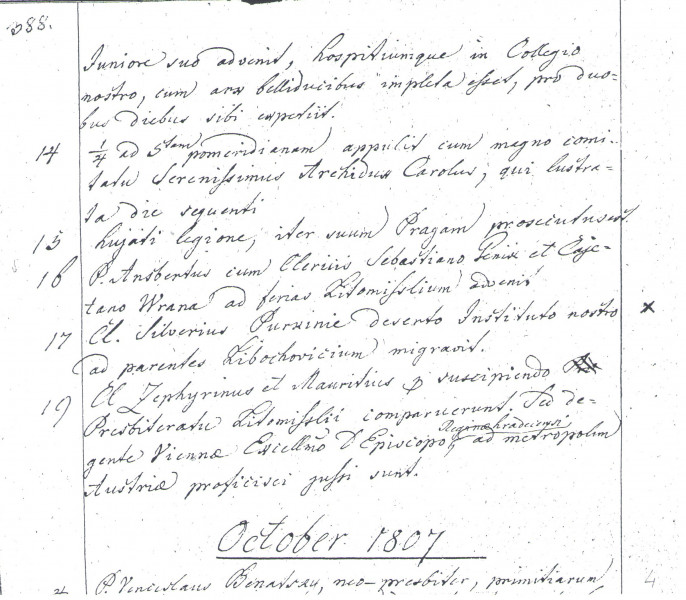 388.
Juniore suo advenit, hospitiumque in Collegio
nostro, cum arx belliducibus impleta esset, pro duo-
bus diebus sibi expetiit.
14 1/4 ad 5tam pomeridianam appulit cum magno comi-
tatu Serenissimus Archidux Carolus, qui lustra-
ta die sequenti
15 hujati legione, iter suum Pragam prosecutus est.
16 P. Ansbertus cum Clericis Sebastiano et Caje-
tano Wrana ad ferias Litomisslium advenit
17 Cl. Silverius Purkinie deserto Instituto nostro x
ad parentes Libochovicium migravit.
19 Cl Zephyrinus et Mauritius suscipiendo
Presbiteratu Litomisslii comparuerunt. Sed de-
gente Viennæ Excellmo D Episcopo Reginæhradecensi ad metropolim
Austriæ proficisci jussi sunt.
October 1807
P. Venceslaus neo-presbiter, primitiarum
4